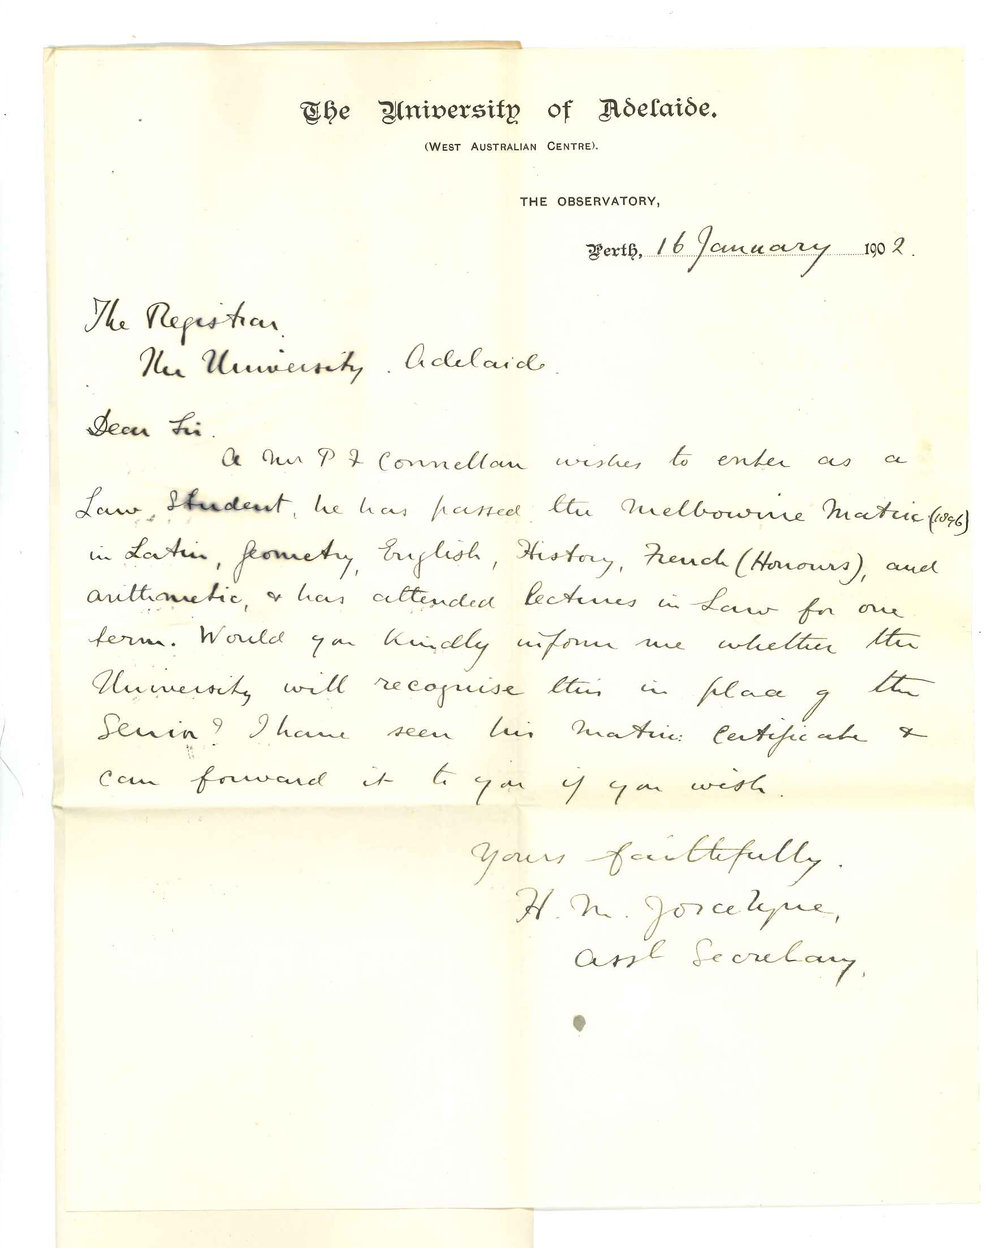 The University of Adelaide.
(West Australian Centre).
THE OBSERVATORY,
Perth, 16 January 1902.
The Registrar.
The University. Adelaide.
Dear Sir.
A Mr P F Connellan wishes to enter as a
Law Student, he has passed the Melbourne Matric (1896)
in Latin, Geometry, English, History, French (Honours), and
arithmetic, & has attended lectures in Law for one
term. Would you kindly inform me whether the
University will recognise this in place of the
Senior? I have seen his Matric: Certificate &
can forward it to you if you wish.
Yours faithfully.
H. M. Jocelyne,
Asst Secretary.